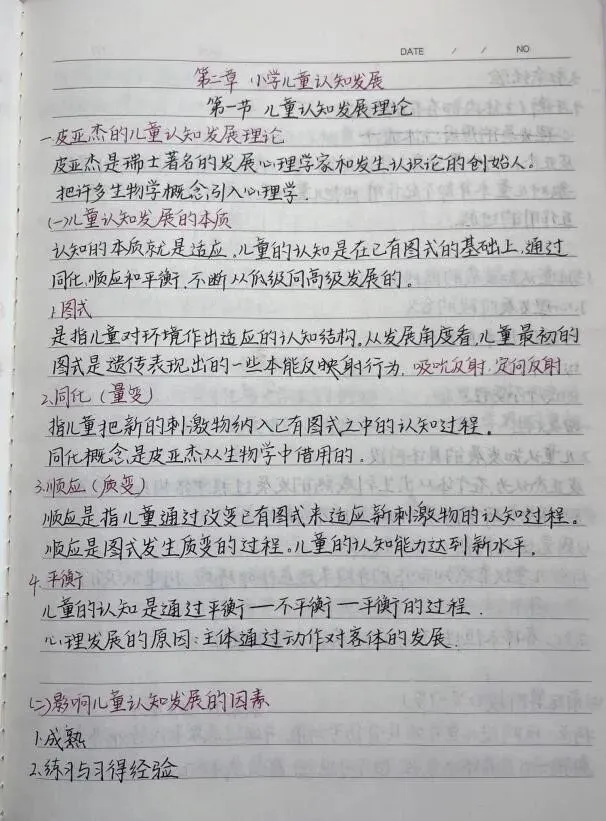 DATE / / NO
第二章 小学儿童认知发展
第一节 儿童认知发展理论
一.皮亚杰的儿童认知发展理论
皮亚杰是瑞士著名的发展心理学家和发生认识论的创始人。
把许多生物学概念引入心理学.
(一)儿童认知发展的本质
认知的本质就是适应。儿童的认知是在已有图式的基础上,通过
同化、顺应和平衡,不断从低级向高级发展的。
1.图式
是指儿童对环境作出适应的认知结构。从发展角度看,儿童最初的
图式是遗传表现出的一些本能反映射行为. 吸吮反射、定向反射
2.同化(量变)
指儿童把新的刺激物纳入已有图式之中的认知过程.
同化概念是皮亚杰从生物学中借用的。
3.顺应(质变)
顺应是指儿童通过改变已有图式来适应新刺激物的认知过程。
顺应是图式发生质变的过程。儿童的认知能力达到新水平.
4.平衡
儿童的认知是通过平衡—不平衡—平衡的过程.
心理发展的原因:主体通过动作对客体的发展.
(二)影响儿童认知发展的因素
1.成熟
2.练习与习得经验